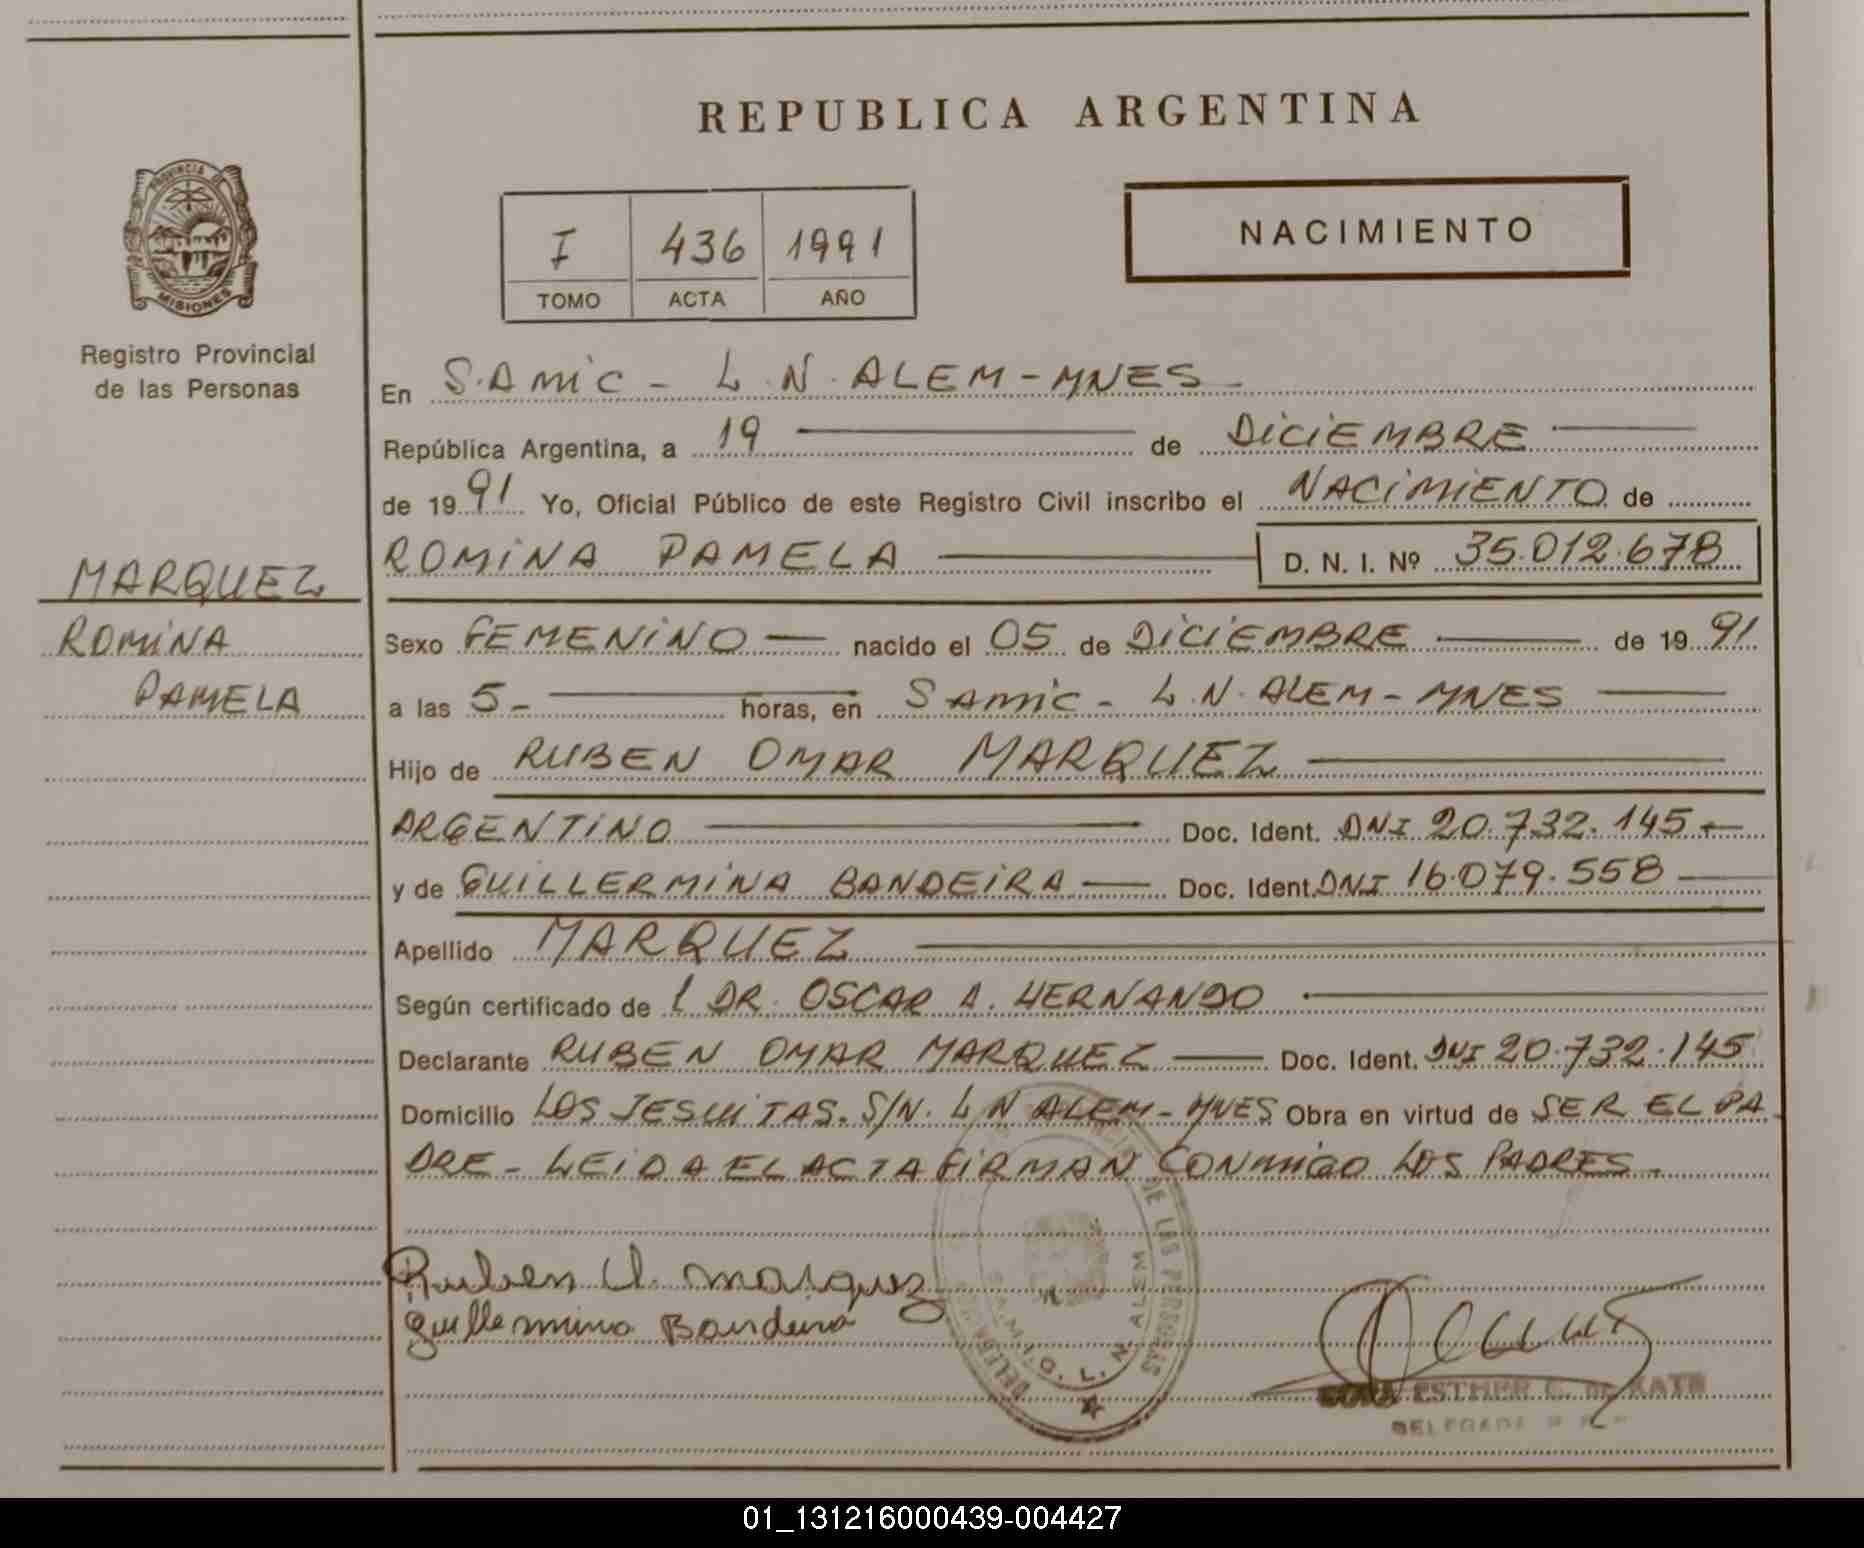 REPUBLICA ARGENTINA
PROVINCIA DE
MISIONES
Registro Provincial
de las Personas
I 436 1991
TOMO ACTA AÑO
NACIMIENTO
En S.AMIC - L.N. ALEM - MNES -
República Argentina, a 19 de DICIEMBRE
de 1991 Yo, Oficial Público de este Registro Civil inscribo el NACIMIENTO de
ROMINA PAMELA D. N. I. Nº 35.012.678
MARQUEZ
ROMINA
PAMELA
Sexo FEMENINO nacido el 05 de DICIEMBRE de 1991
a las 5- horas, en SAMIC - L.N. ALEM - MNES
Hijo de RUBEN OMAR MARQUEZ
ARGENTINO Doc. Ident. DNI 20.732.145
y de GUILLERMINA BANDEIRA Doc. Ident. DNI 16.079.558
Apellido MARQUEZ
Según certificado de l DR. OSCAR A. HERNANDO
Declarante RUBEN OMAR MARQUEZ Doc. Ident. DNI 20.732.145
Domicilio LOS JESUITAS. S/N. L N ALEM - MNES Obra en virtud de SER EL PA
DRE - LEIDA EL ACTA FIRMAN CONMIGO LOS PADRES.
Ruben O. Marquez
Guillermina Bandeira
DE LAS PERSONAS
L. N. ALEM
ESTHER
01_131216000439-004427